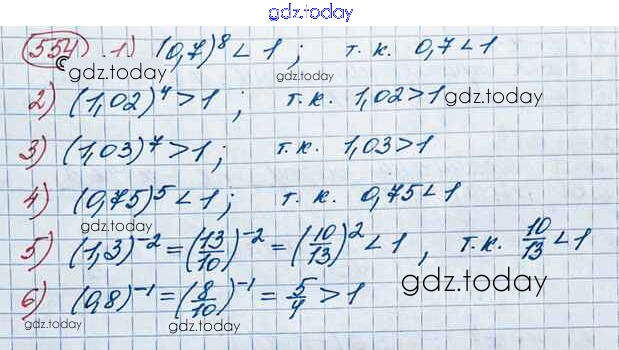 gdz.today
554 1) (0,7)^8 < 1 ; т.к. 0,7 < 1
gdz.today
2) (1,02)^4 > 1 ; т.к. 1,02 > 1 gdz.today
3) (1,03)^7 > 1 ; т.к. 1,03 > 1
4) (0,75)^5 < 1 ; т.к. 0,75 < 1
gdz.today
5) (1,3)^-2 = (13/10)^-2 = (10/13)^2 < 1 , т.к. 10/13 < 1
6) (0,8)^-1 = (8/10)^-1 = 5/4 > 1 gdz.today
gdz.today gdz.today